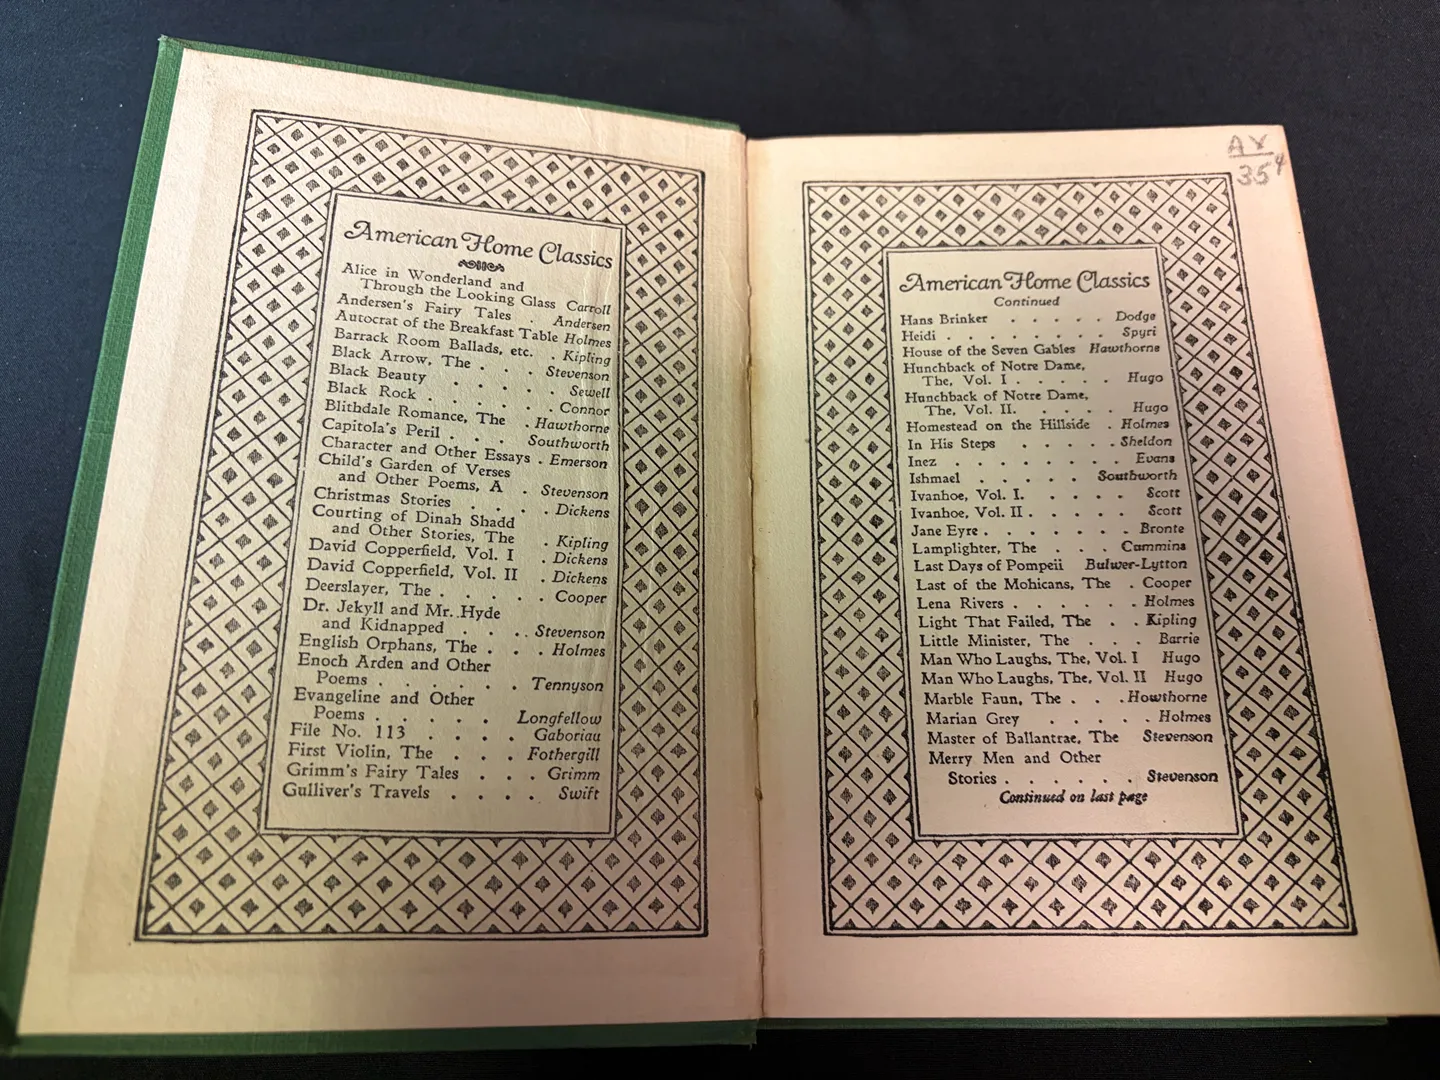 American Home Classics
Alice in Wonderland and
Through the Looking Glass Carroll
Andersen's Fairy Tales . Andersen
Autocrat of the Breakfast Table Holmes
Barrack Room Ballads, etc. . Kipling
Black Arrow, The . . . Stevenson
Black Beauty . . . . Sewell
Black Rock . . . . . . Connor
Blithdale Romance, The . Hawthorne
Capitola's Peril . . . Southworth
Character and Other Essays . Emerson
Child's Garden of Verses
and Other Poems, A . Stevenson
Christmas Stories . . . . Dickens
Courting of Dinah Shadd
and Other Stories, The . Kipling
David Copperfield, Vol. I . Dickens
David Copperfield, Vol. II . Dickens
Deerslayer, The . . . . . Cooper
Dr. Jekyll and Mr. Hyde
and Kidnapped . . . . Stevenson
English Orphans, The . . . Holmes
Enoch Arden and Other
Poems . . . . . . Tennyson
Evangeline and Other
Poems . . . . . Longfellow
File No. 113 . . . . Gaboriau
First Violin, The . . . Fothergill
Grimm's Fairy Tales . . . Grimm
Gulliver's Travels . . . . Swift
AX
35¢
American Home Classics
Continued
Hans Brinker . . . . . Dodge
Heidi . . . . . . . Spyri
House of the Seven Gables Hawthorne
Hunchback of Notre Dame,
The, Vol. I . . . . . Hugo
Hunchback of Notre Dame,
The, Vol. II. . . . . Hugo
Homestead on the Hillside . Holmes
In His Steps . . . . . Sheldon
Inez . . . . . . . . Evans
Ishmael . . . . . Southworth
Ivanhoe, Vol. I. . . . . Scott
Ivanhoe, Vol. II . . . . . Scott
Jane Eyre . . . . . . . Bronte
Lamplighter, The . . . Cummins
Last Days of Pompeii Bulwer-Lytton
Last of the Mohicans, The . Cooper
Lena Rivers . . . . . . Holmes
Light That Failed, The . . Kipling
Little Minister, The . . . Barrie
Man Who Laughs, The, Vol. I Hugo
Man Who Laughs, The, Vol. II Hugo
Marble Faun, The . . . Howthorne
Marian Grey . . . . . Holmes
Master of Ballantrae, The Stevenson
Merry Men and Other
Stories . . . . . . Stevenson
Continued on last page